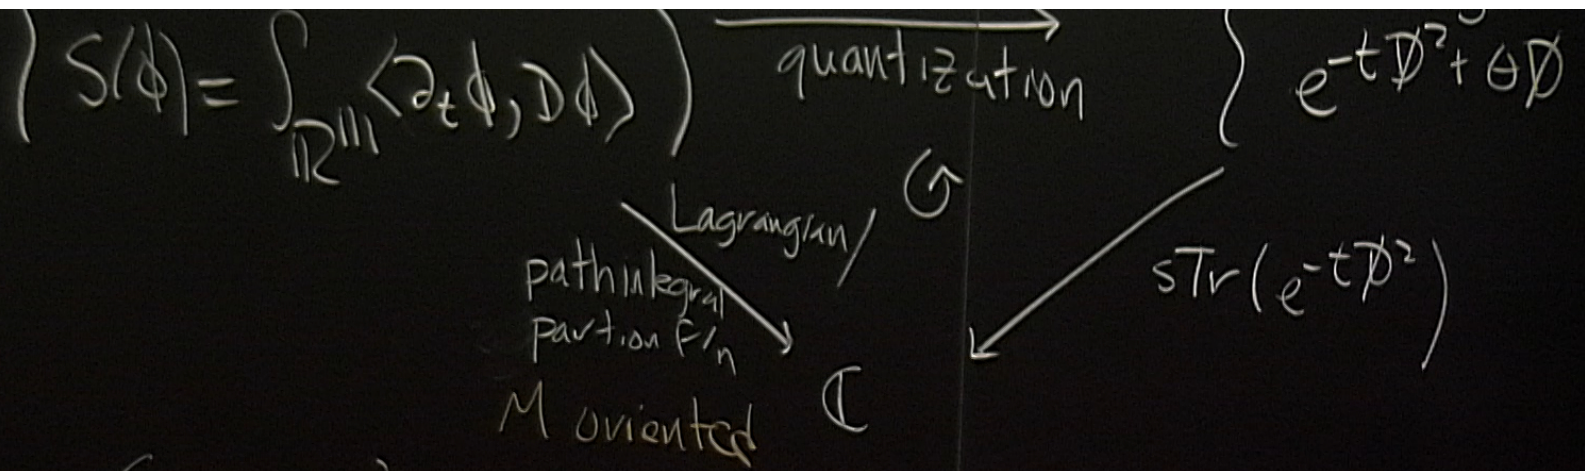 S(ϕ) = ∫_{ℝ^{1|1}} ⟨∂_t ϕ, Dϕ⟩
quantization
e^{-tD̸² + θD̸}
Lagrangian/
pathintegral
partion F/n
sTr(e^{-tD̸²})
ℂ
M oriented